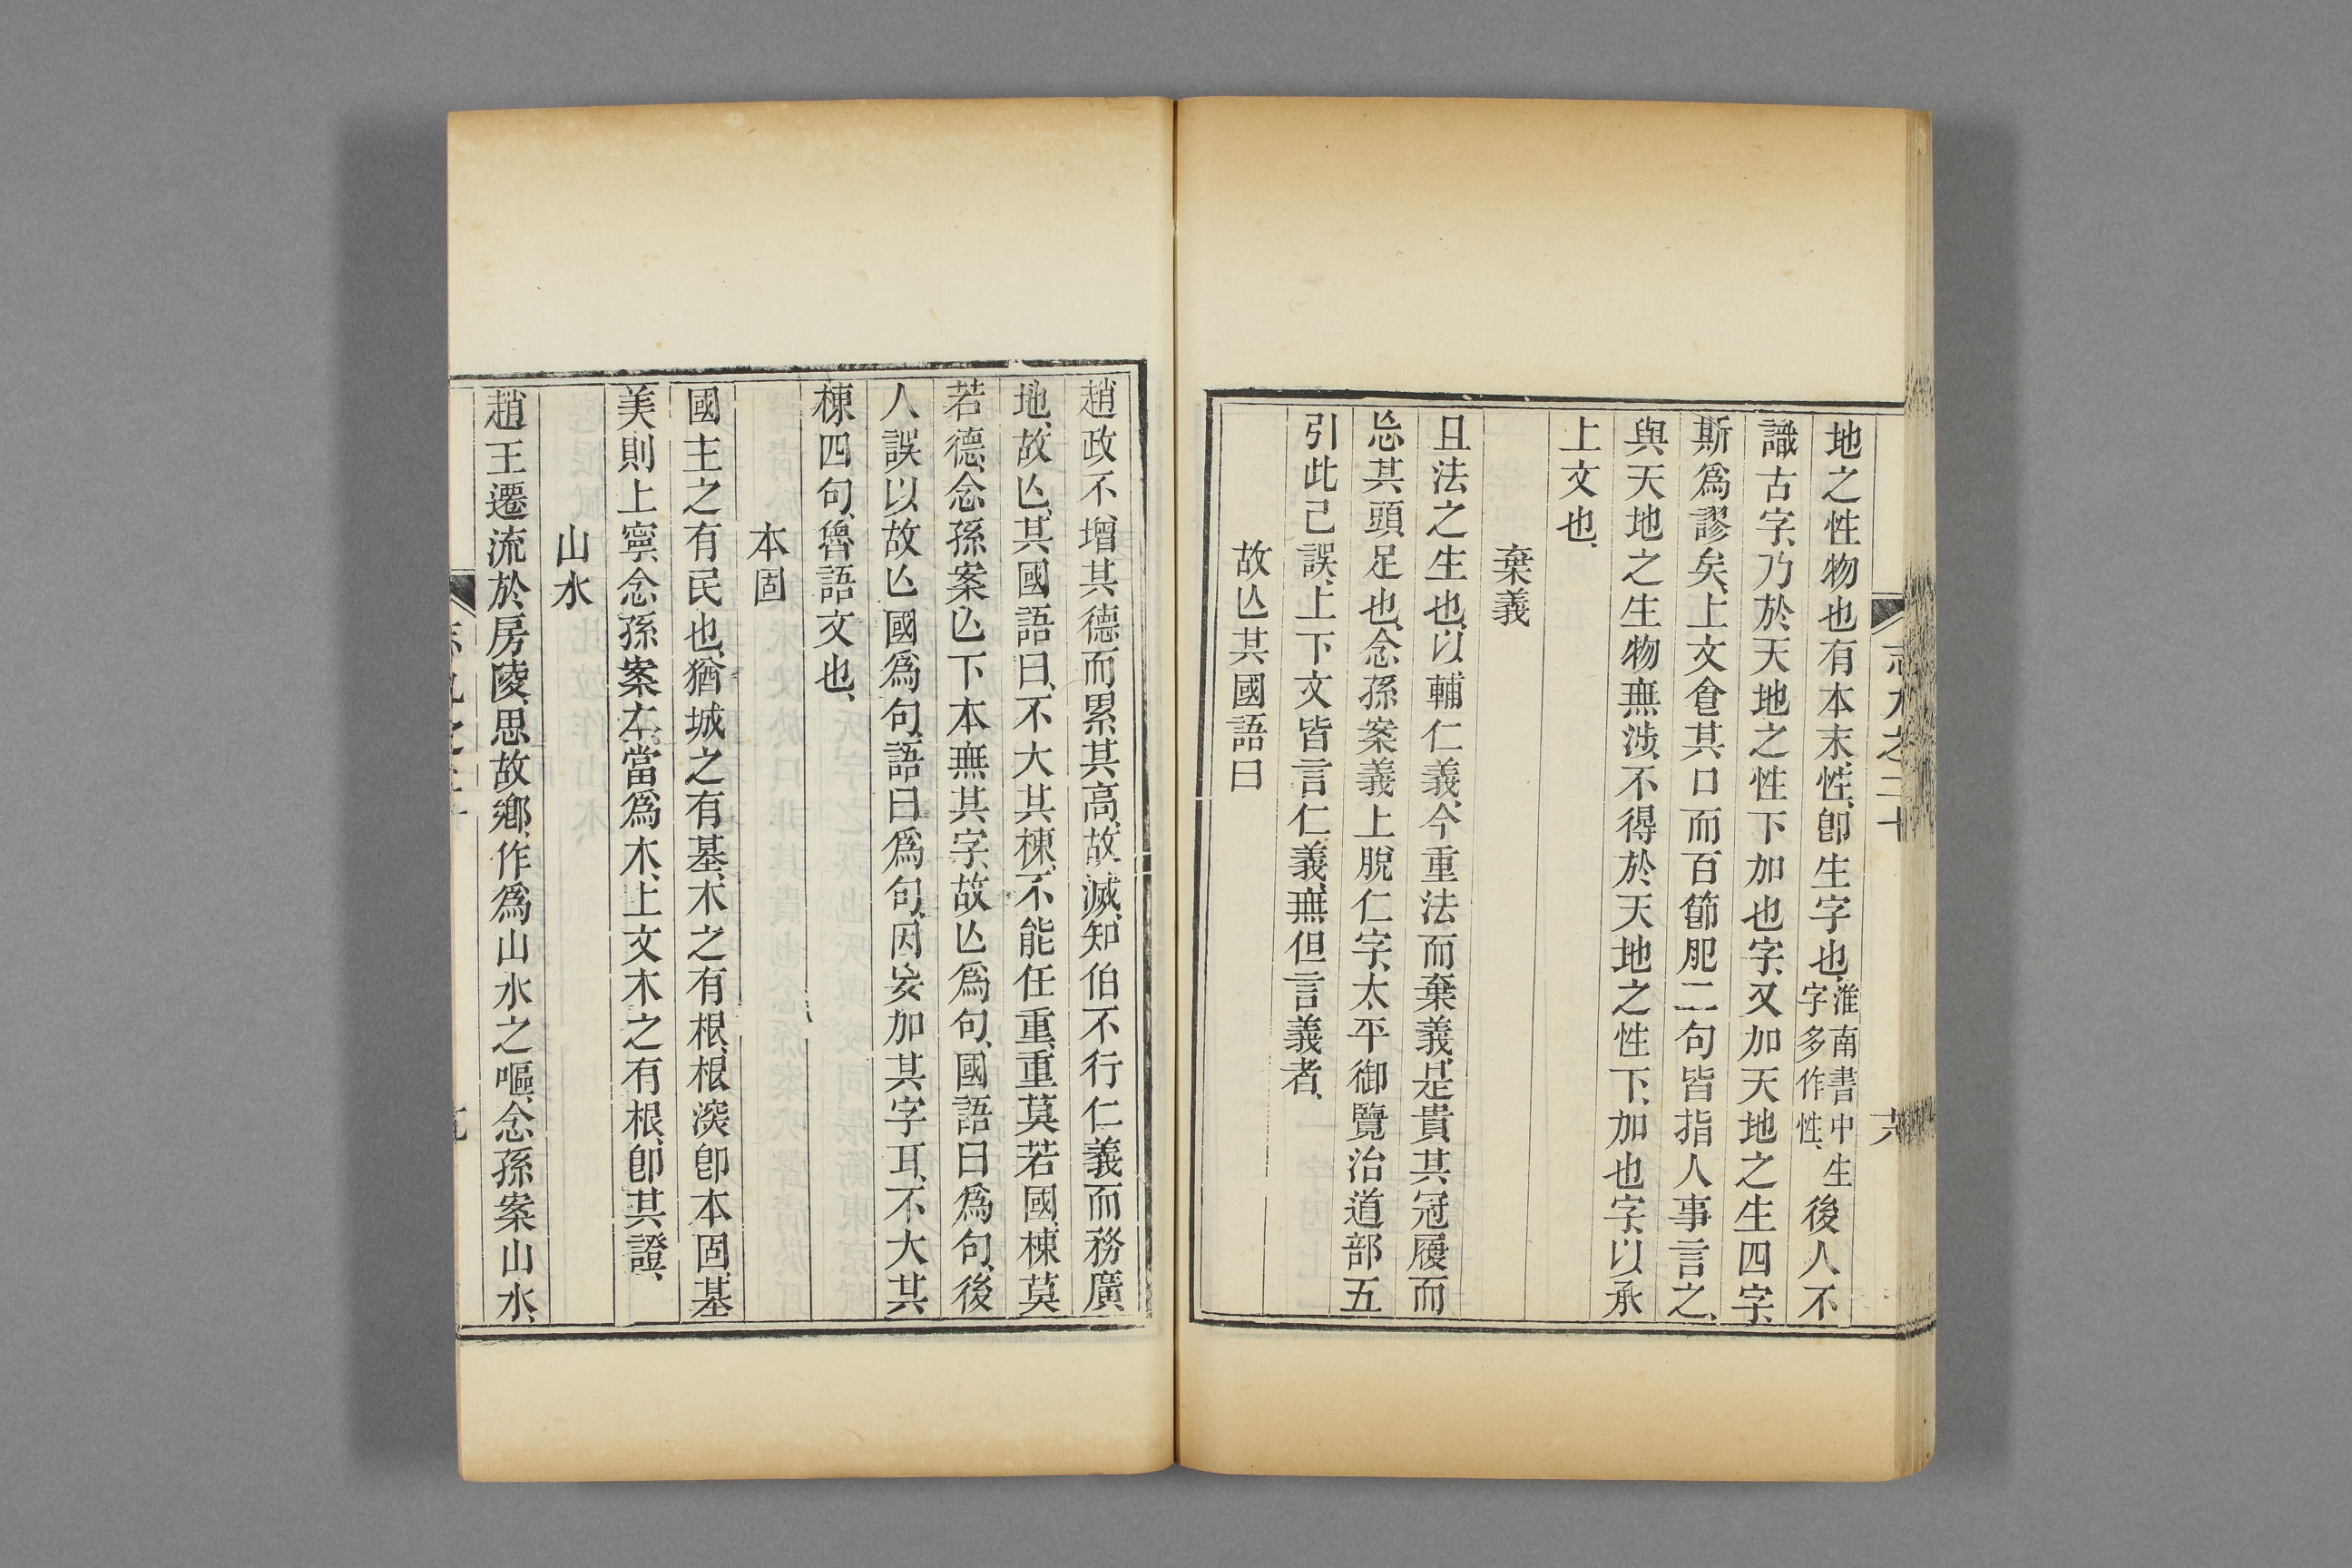 志九之二十
六
地之性物也有本末、性、卽生字也、淮南書中生字多作性、後人不
識古字、乃於天地之性下加也字、又加天地之生四字、
斯爲謬矣、上文食其口而百節肥二句皆指人事言之、
與天地之生物無涉、不得於天地之性下、加也字、以承
上文也、
棄義
且法之生也、以輔仁義、今重法而棄義、是貴其冠履而
忘其頭足也、念孫案義上脫仁字、太平御覽治道部五
引此已誤、上下文皆言仁義、無但言義者、
故亾其國語曰
趙政不增其德而累其高、故滅、知伯不行仁義而務廣
地、故亾、其國語曰、不大其棟、不能任重、重莫若國、棟莫
若德、念孫案亾下本無其字、故亾爲句、國語曰爲句、後
人誤以故亾國爲句、語曰爲句、因妄加其字耳、不大其
棟四句、魯語文也、
本固
國主之有民也、猶城之有基、木之有根、根深卽本固、基
美則上寧、念孫案本、當爲木、上文木之有根、卽其證、
山水
趙王遷流於房陵、思故鄉、作爲山水之嘔、念孫案山水、